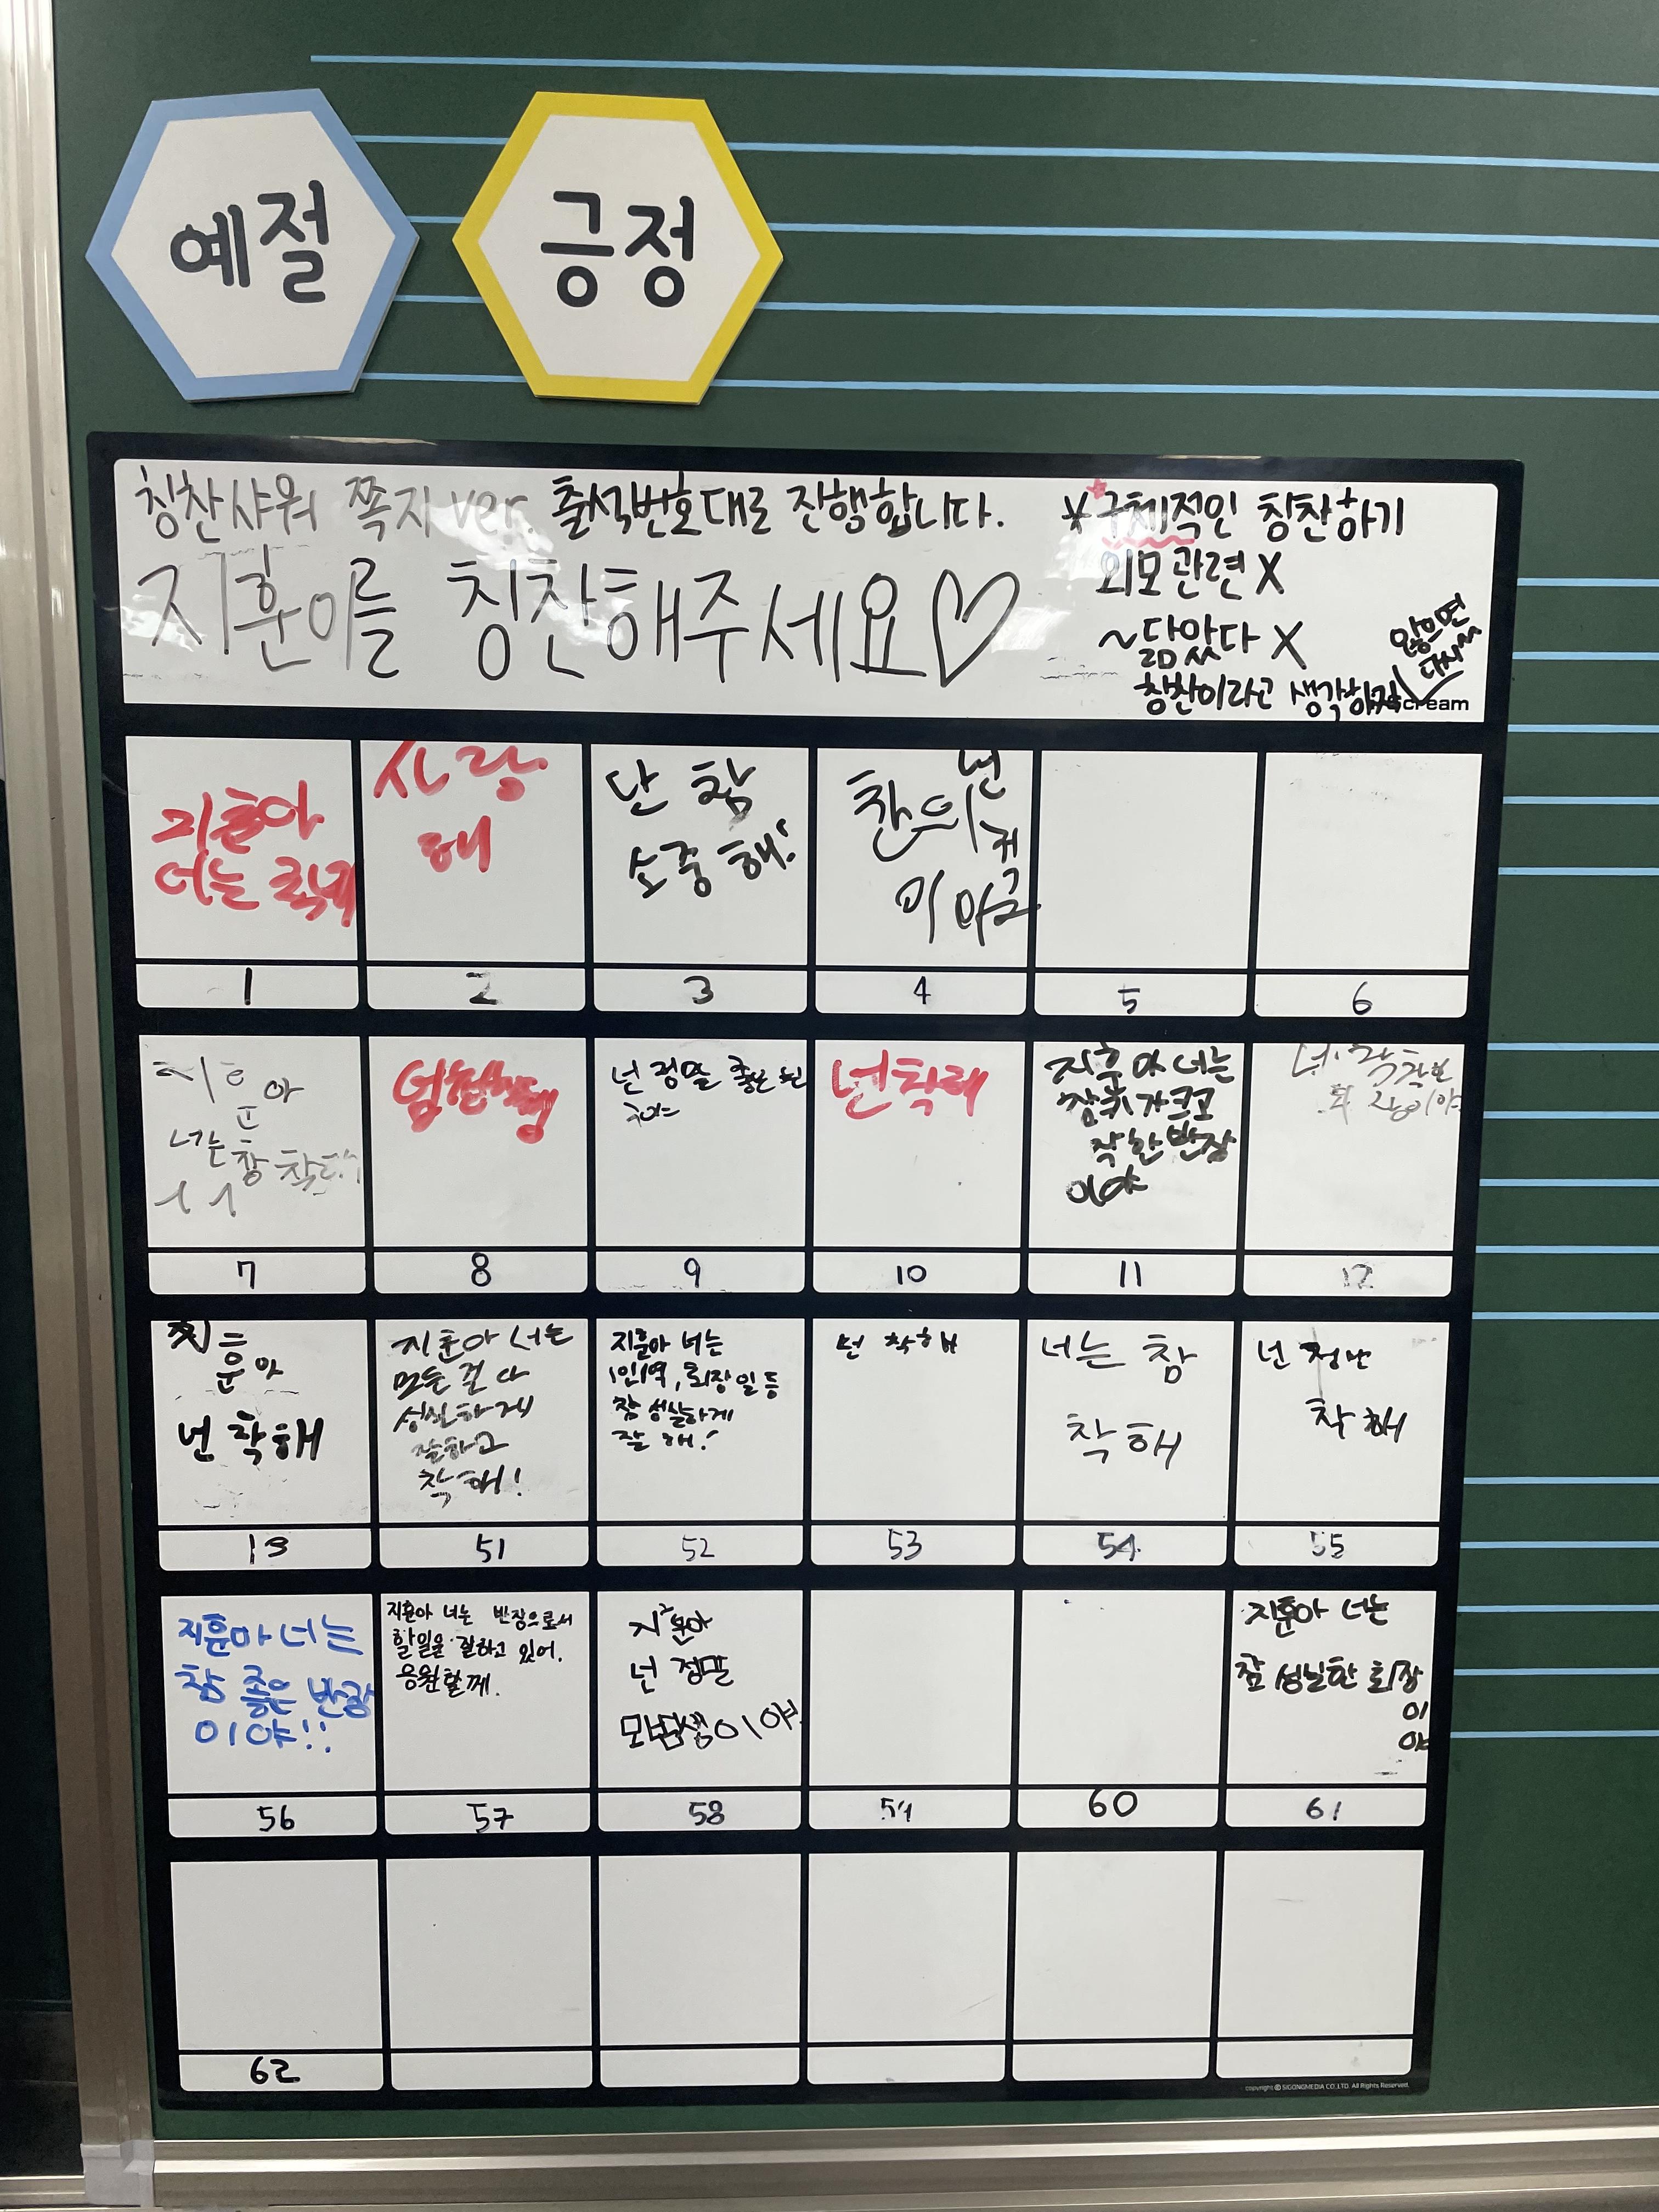 예절
긍정
칭찬샤워 쪽지 ver. 출석번호대로 진행합니다.
지훈이를 칭찬해주세요♡
* 구체적인 칭찬하기
외모관련 X
~닮았다 X
칭찬이라고 생각하지
않으면
다시
cream
지훈아
너는 착해
사랑
해
참
소중해!
넌
이야
1
2
3
4
5
6
아
너는 참
넌 정말 좋은
넌 착해
지훈아 너는
잠귀가 크고
착한 반장
이야
착한
회장이야
7
8
9
10
11
12
훈아
넌 착해
지훈아 너는
모든 걸 다
성실하게
잘하고
착해!
지훈아 너는
1인1역, 회장일 등
참 성실하게
잘 해!
넌 착해
너는 참
착해
넌 정말
착해
13
51
52
53
54
55
지훈아 너는
참 좋은 반장
이야!!
지훈아 너는 반장으로서
할일을 잘하고 있어.
응원할께.
지훈아
넌 정말
모범생이야!
지훈아 너는
참 성실한 회장
이
야
56
57
58
59
60
61
62
copyright ⓒ SIGONGMEDIA CO.,LTD. All Rights Reserved.